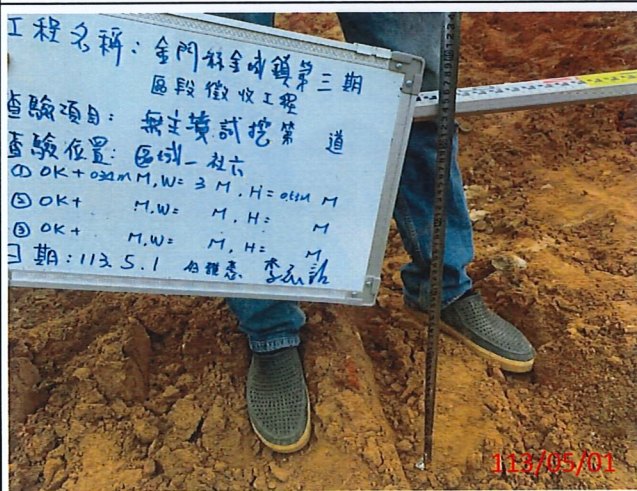 工程名稱：金門縣金城鎮第三期
區段徵收工程
查驗項目：無主墳試挖第 道
查驗位置：區域一社六
① OK+ M,W= 3 M,H= M
② OK+ M,W= M,H= M
③ OK+ M,W= M,H= M
日期：113.5.1
113/05/01